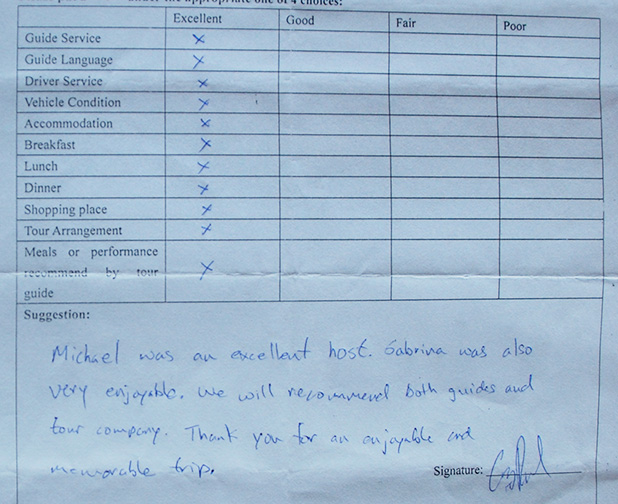 under the appropriate one of 4 choices:
Excellent Good Fair Poor
Guide Service ×
Guide Language ×
Driver Service ×
Vehicle Condition ×
Accommodation ×
Breakfast ×
Lunch ×
Dinner ×
Shopping place ×
Tour Arrangement ×
Meals or performance
recommend by tour ×
guide
Suggestion:
Michael was an excellent host. Sabrina was also
very enjoyable. We will recommend both guides and
tour company. Thank you for an enjoyable and
memorable trip.
Signature: